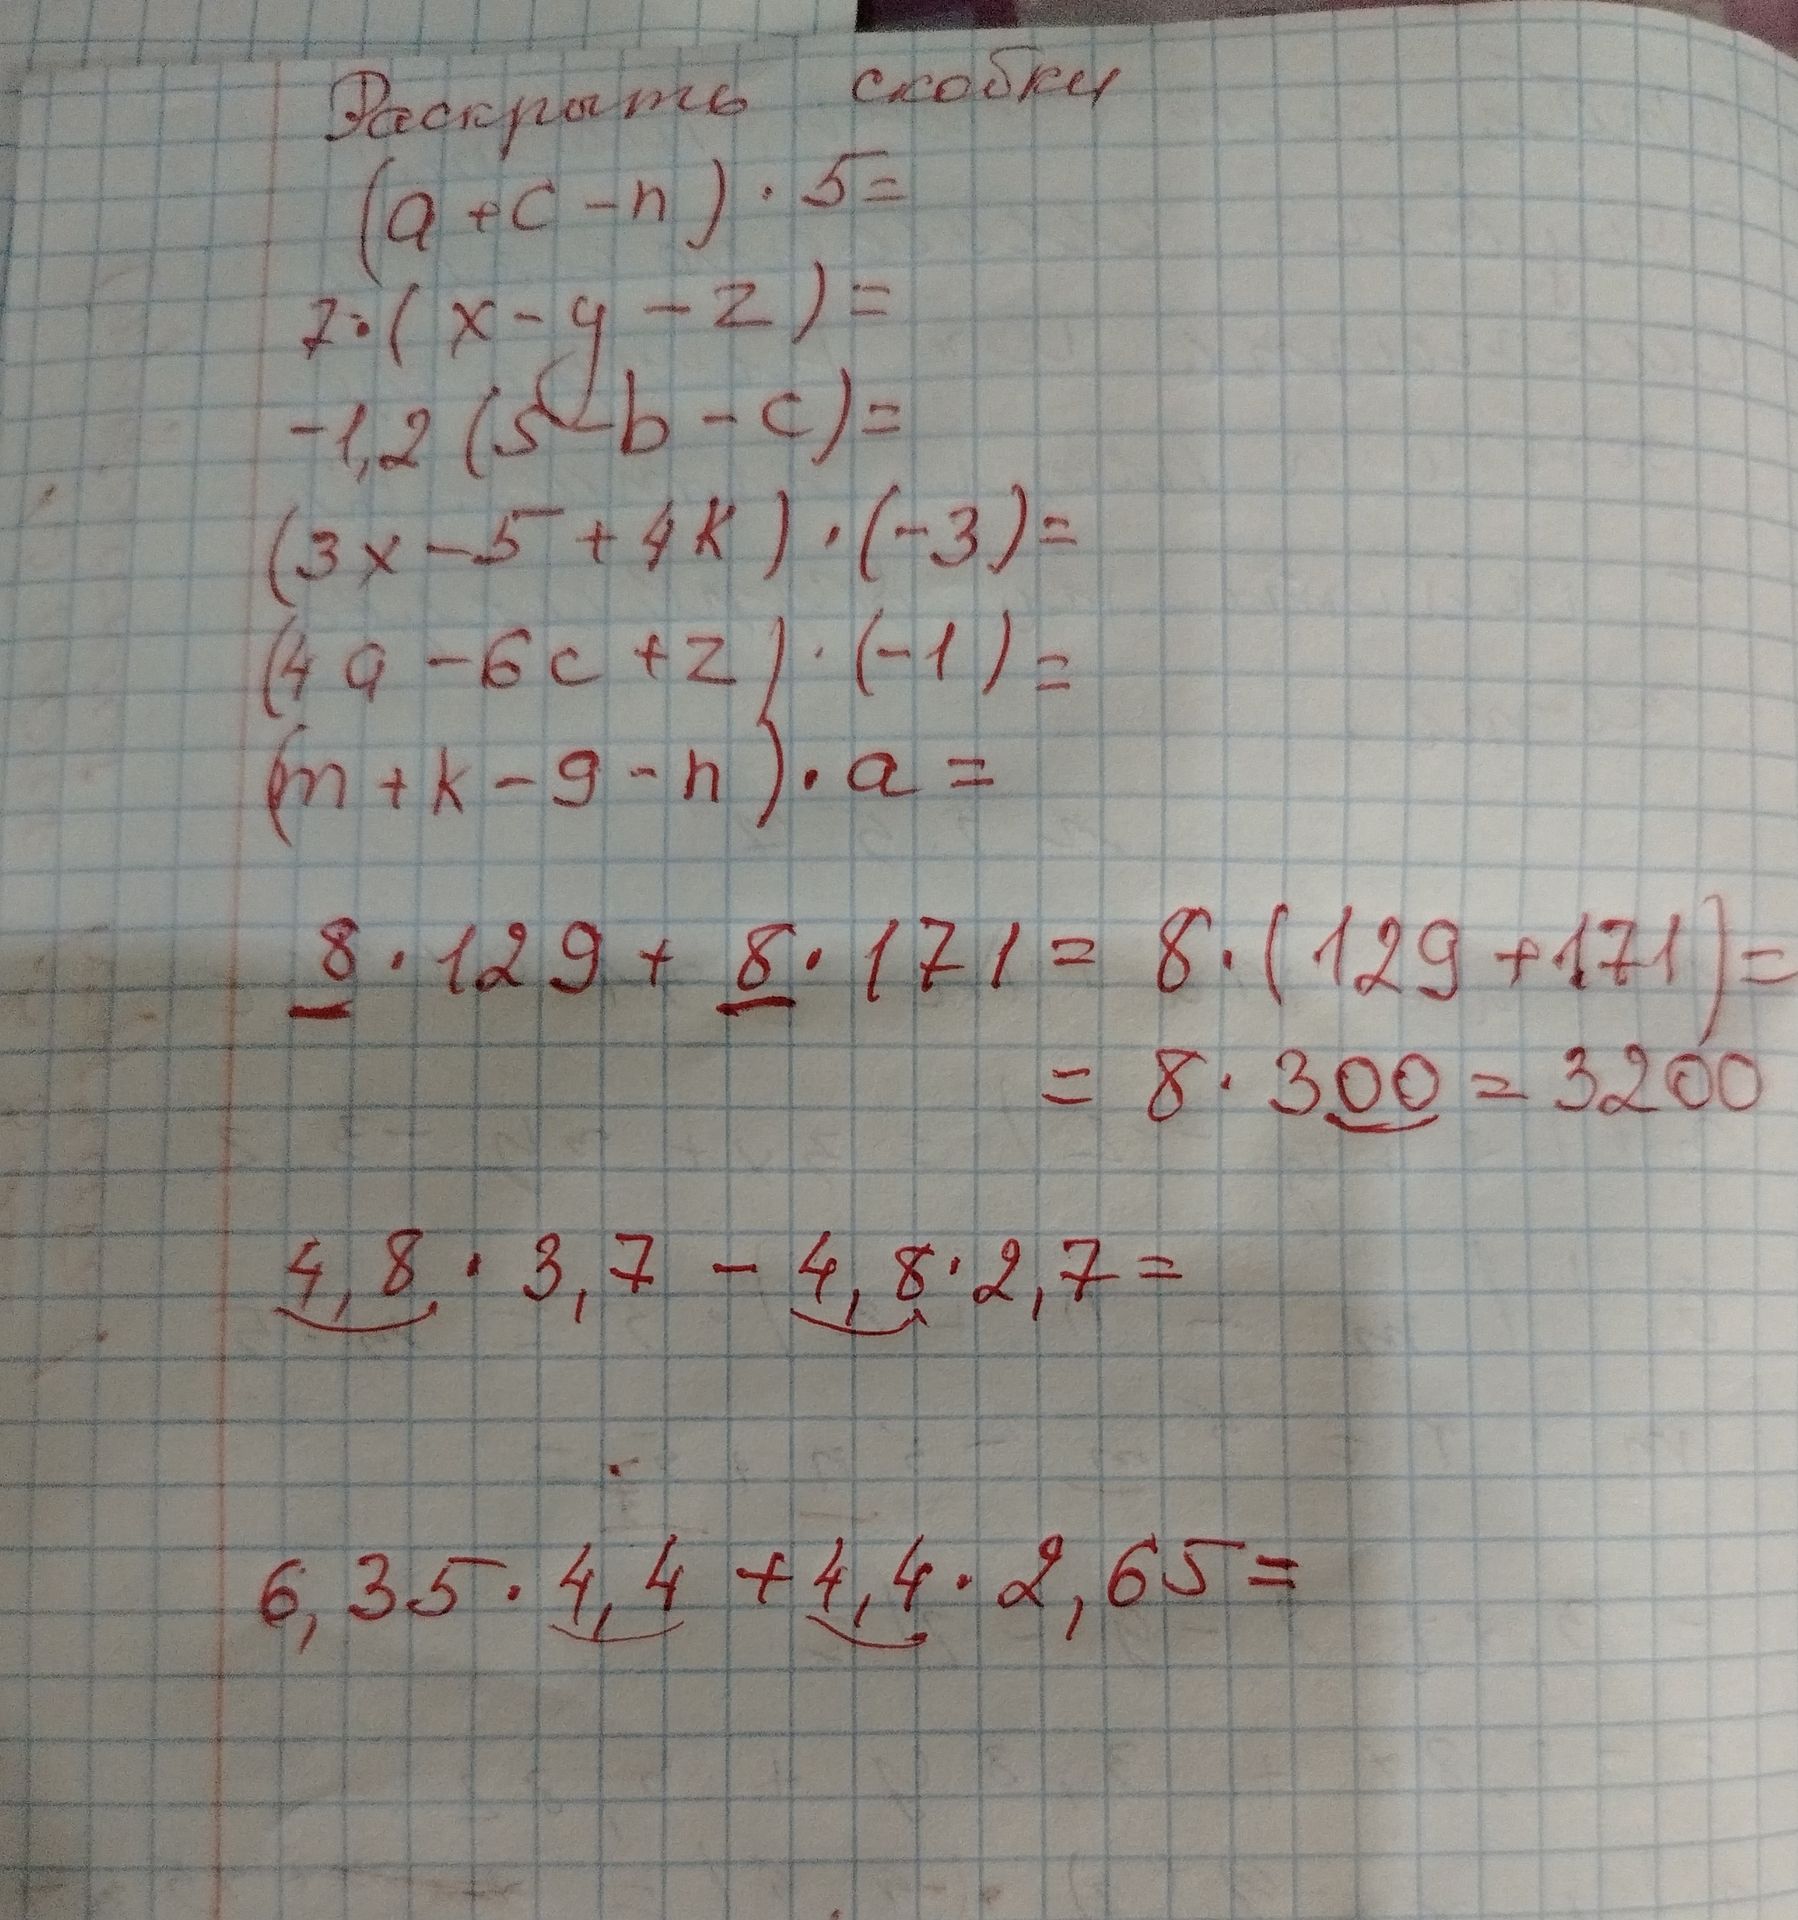 Раскрыть скобки
(a+c-n)·5=
7·(x-y-z)=
-1,2(5-b-c)=
(3x-5+4k)·(-3)=
(4a-6c+z)·(-1)=
(m+k-9-n)·a=
8·129+8·171=8·(129+171)=
=8·300=3200
4,8·3,7-4,8·2,7=
6,35·4,4+4,4·2,65=